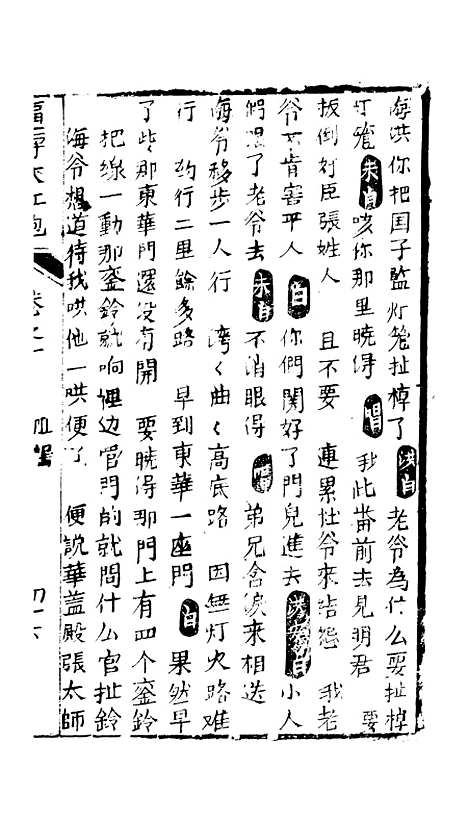 海洪你把国子監灯笼扯棹了 洪白 老爷為什么要扯棹
灯籠 朱白 咳你那里暁得 唱 我此畨前去見明君 要
扳倒奸臣張姓人 且不要 連累灶爷來結怨 我老
爷不肯害平人 白 你們関好了門兒進去 白 小人
們退了老爷去 朱白 不消眼得 唱 弟兄含淚來相送
海爷移步一人行 湾〻曲〻高底路 因無灯火路难
行 約行二里餘多路 早到東華一座門 白 果然早
了些那東華門還没有開 要暁得那門上有四个銮鈴
把線一動那銮鈴就响裡边官門的就問什么官扯鈴
海爷想道待我哄他一哄便了 便説華盖殿張太師
大紅袍 卷之一